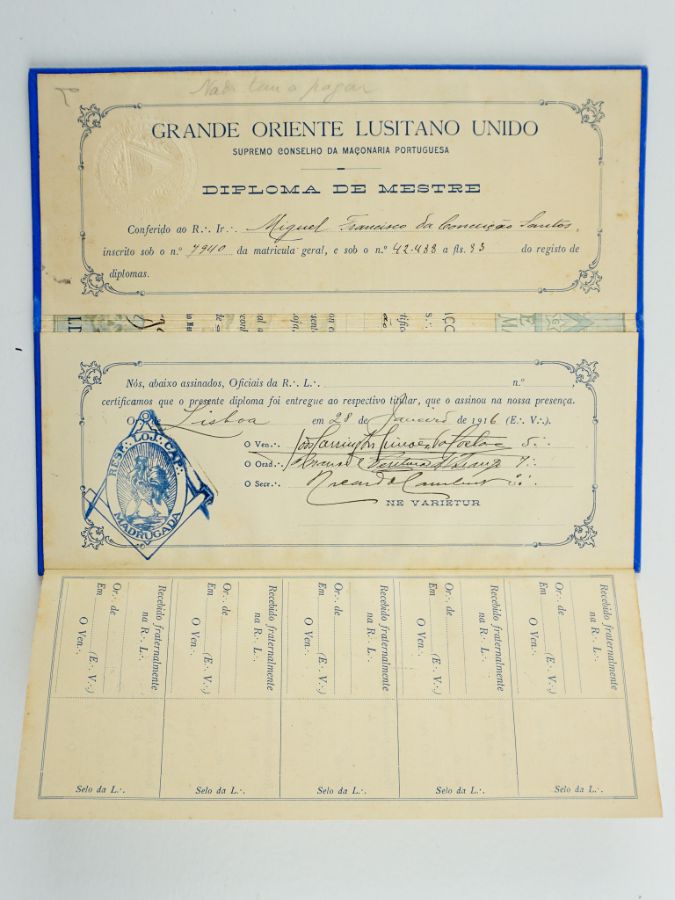 Nada tem a pagar
GRANDE ORIENTE LUSITANO UNIDO
SUPREMO CONSELHO DA MAÇONARIA PORTUGUESA
DIPLOMA DE MESTRE
Conferido ao R∴ Ir∴ Miguel Francisco da Conceição Santos,
inscrito sob o n.º 7940 da matricula geral, e sob o n.º 42.488 a fls. 93 do registo de
diplomas.
Nós, abaixo assinados, Oficiais da R∴ L∴ n.º ,
certificamos que o presente diploma foi entregue ao respectivo titular, que o assinou na nossa presença.
O Lisboa em 28 de Janeiro de 1916 (E∴ V∴)
O Ven∴
O Orad∴
O Secr∴ Ricardo
NE VARIETUR
RESP∴ LOJ∴ CAP∴
MADRUGADA
Recebido fraternalmente
na R∴ L∴
Or∴ de
Em (E∴ V∴)
O Ven∴
Selo da L∴
Recebido fraternalmente
na R∴ L∴
Or∴ de
Em (E∴ V∴)
O Ven∴
Selo da L∴
Recebido fraternalmente
na R∴ L∴
Or∴ de
Em (E∴ V∴)
O Ven∴
Selo da L∴
Recebido fraternalmente
na R∴ L∴
Or∴ de
Em (E∴ V∴)
O Ven∴
Selo da L∴
Recebido fraternalmente
na R∴ L∴
Or∴ de
Em (E∴ V∴)
O Ven∴
Selo da L∴